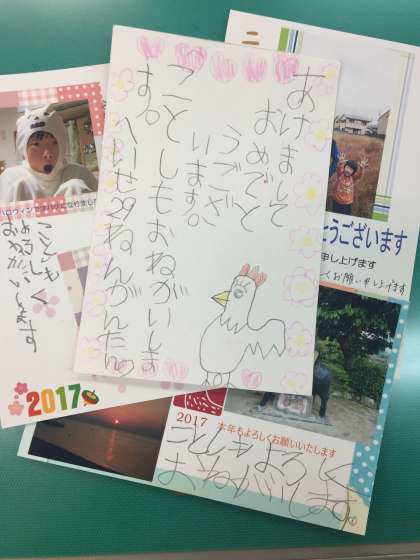 あけまして
おめでと
うござ
います。
ことしもおねがいしま
す。
へいせ29ねんがんたん
ことしも
よろしく
おねがいします
2017
うございます
申し上げます
くお願い申し上げます
2017 本年もよろしくお願いいたします
ことしもよろしく
おねがいします